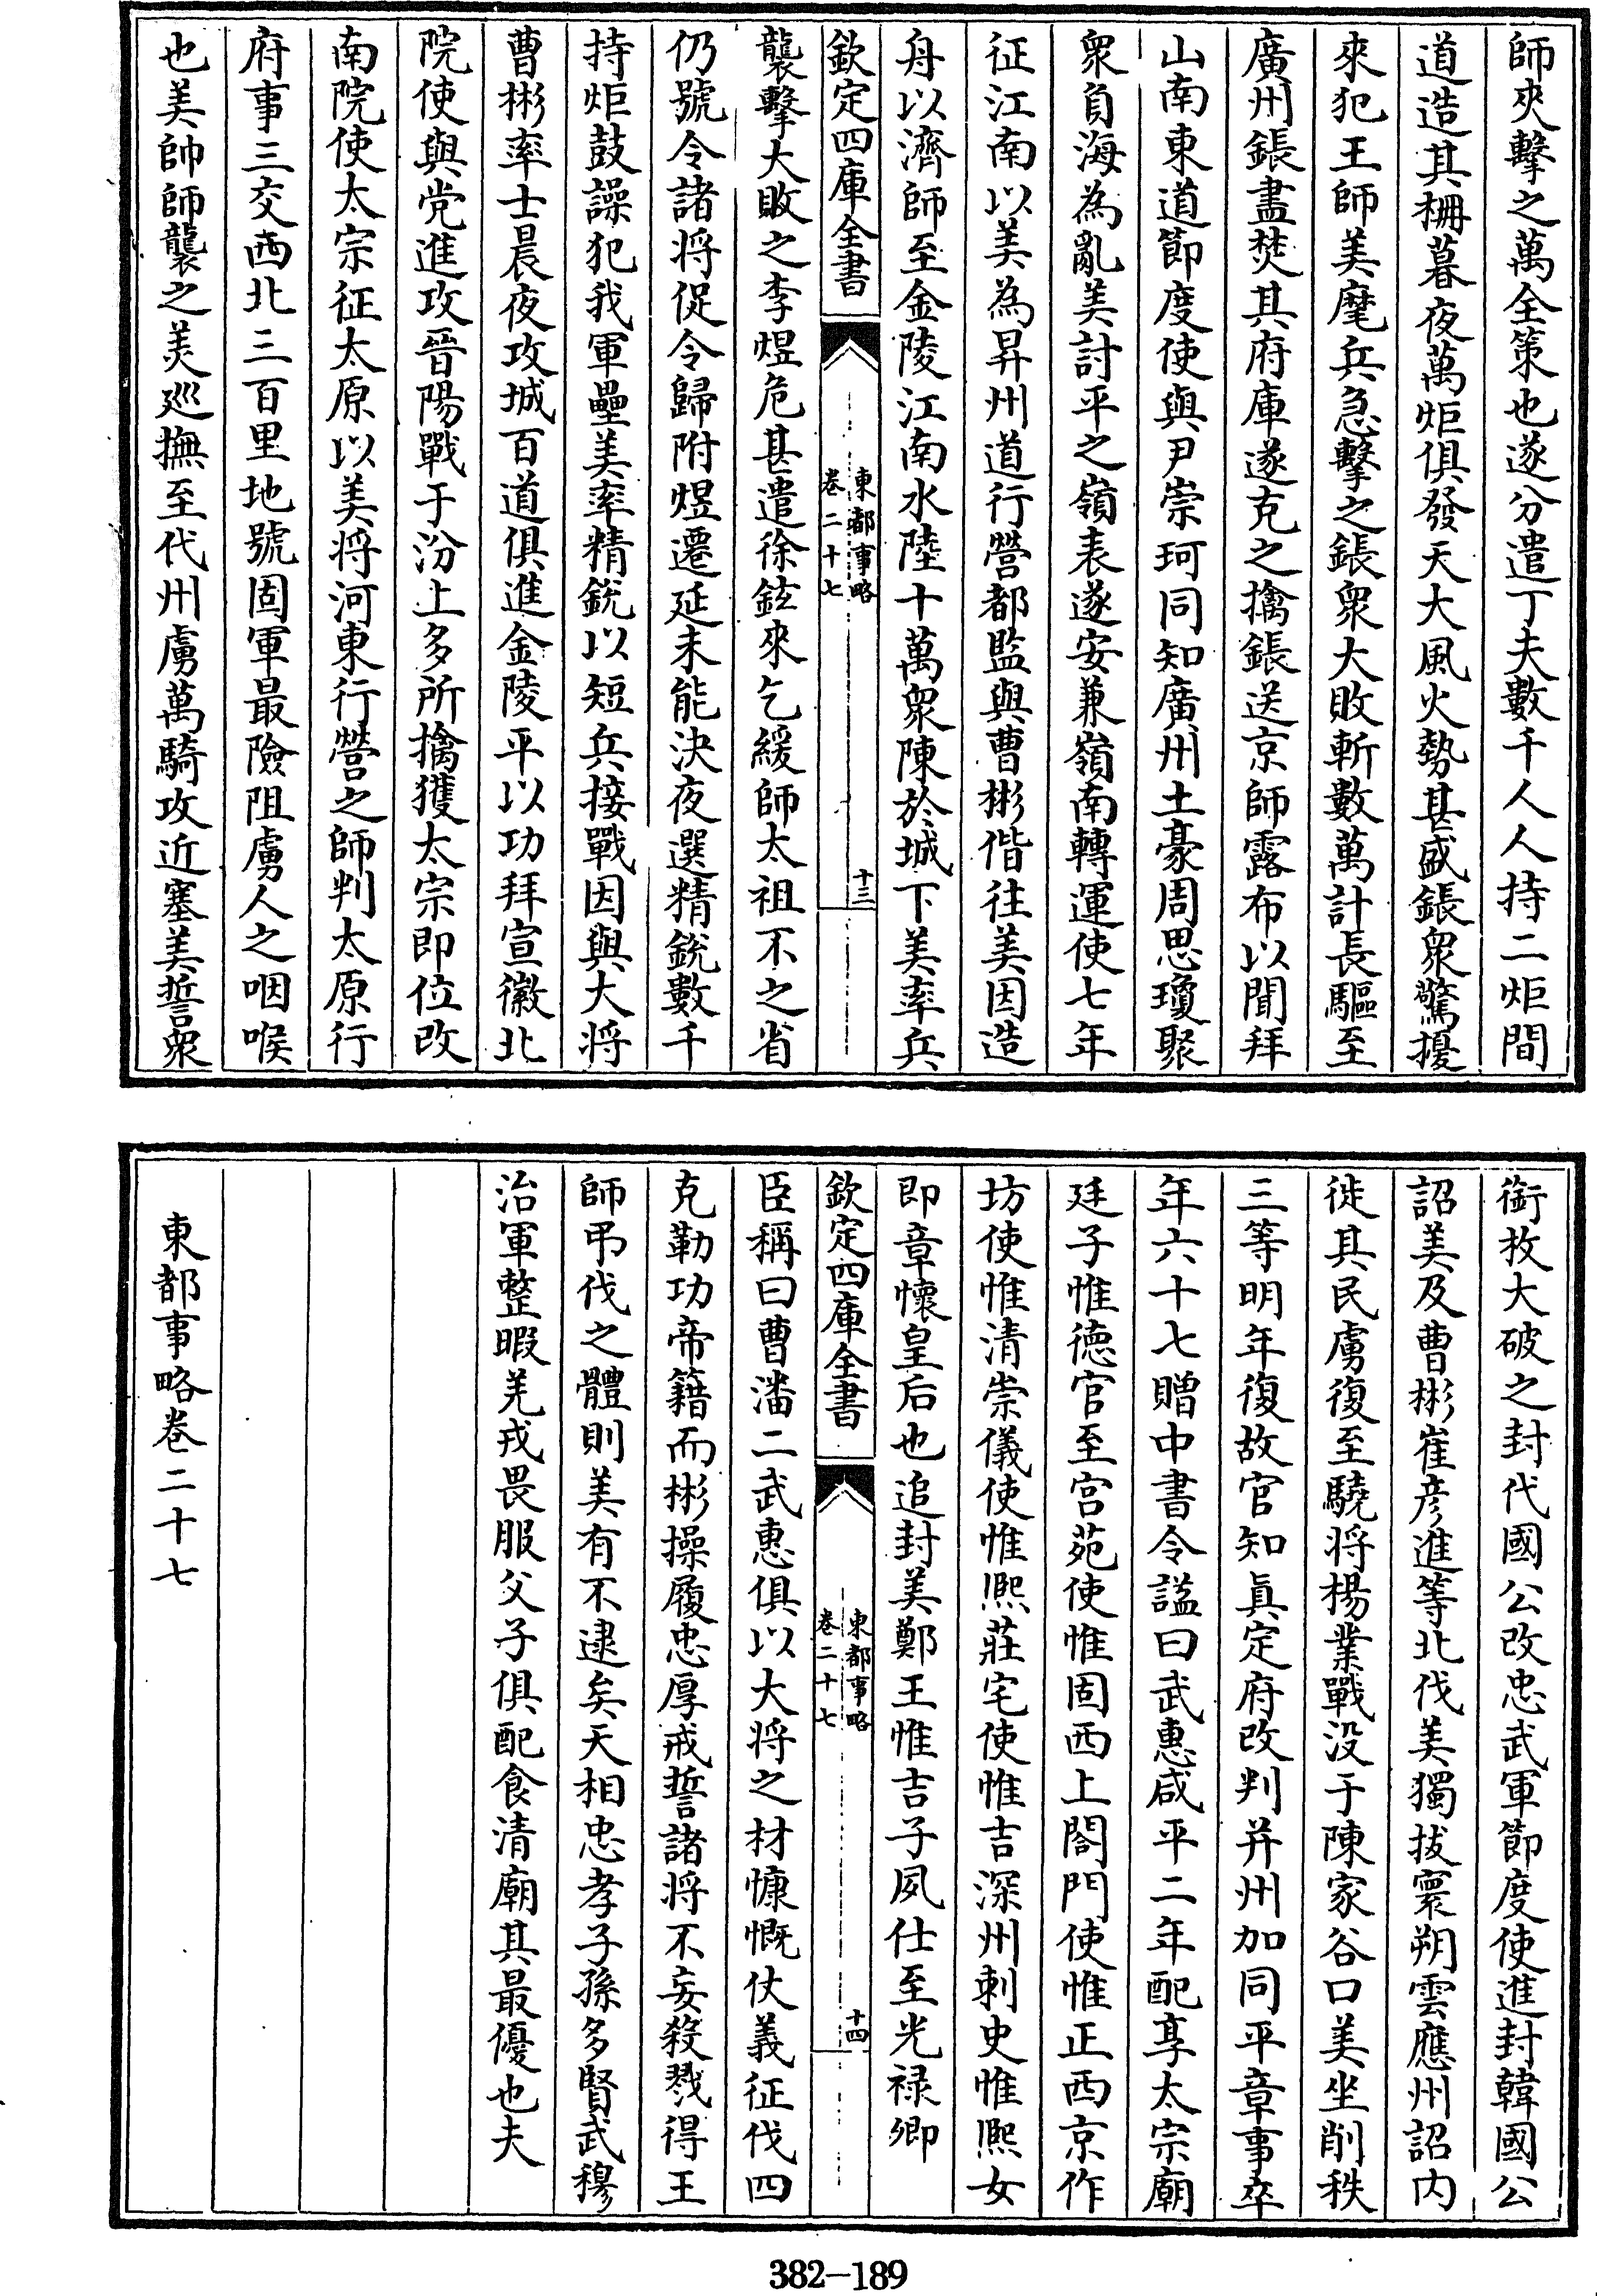 師夾擊之萬全策也遂分遣丁夫數千人人持二炬間
道造其柵暮夜萬炬俱發天大風火勢甚盛鋹衆驚擾
來犯王師美麾兵急擊之鋹衆大敗斬數萬計長驅至
廣州鋹盡焚其府庫遂克之擒鋹送京師露布以聞拜
山南東道節度使與尹崇珂同知廣州土豪周思瓊聚
衆負海為亂美討平之嶺表遂安兼嶺南轉運使七年
征江南以美為昇州道行營都監與曹彬偕往美因造
舟以濟師至金陵江南水陸十萬衆陳於城下美率兵
欽定四庫全書
東都事略
卷二十七
十三
襲擊大敗之李煜危甚遣徐鉉來乞緩師太祖不之省
仍號令諸将促令歸附煜遷延未能決夜選精銳數千
持炬鼓譟犯我軍壘美率精銳以短兵接戰因與大将
曹彬率士晨夜攻城百道俱進金陵平以功拜宣徽北
院使與党進攻晉陽戰于汾上多所擒獲太宗即位改
南院使太宗征太原以美将河東行營之師判太原行
府事三交西北三百里地號固軍最險阻虜人之咽喉
也美帥師襲之美廵撫至代州虜萬騎攻近塞美誓衆
銜枚大破之封代國公改忠武軍節度使進封韓國公
詔美及曹彬崔彦進等北伐美獨拔寰朔雲應州詔内
徙其民虜復至驍将楊業戰没于陳家谷口美坐削秩
三等明年復故官知眞定府改判并州加同平章事卒
年六十七贈中書令諡曰武惠咸平二年配享太宗廟
廷子惟德官至宫苑使惟固西上閤門使惟正西京作
坊使惟清崇儀使惟熈莊宅使惟吉深州刺史惟熈女
即章懷皇后也追封美鄭王惟吉子夙仕至光禄卿
欽定四庫全書
東都事略
卷二十七
十四
臣稱曰曹潘二武惠俱以大将之材慷慨仗義征伐四
克勒功帝籍而彬操履忠厚戒誓諸将不妄殺戮得王
師弔伐之體則美有不逮矣天相忠孝子孫多賢武穆
治軍整暇羌戎畏服父子俱配食清廟其最優也夫
東都事略卷二十七
382-189